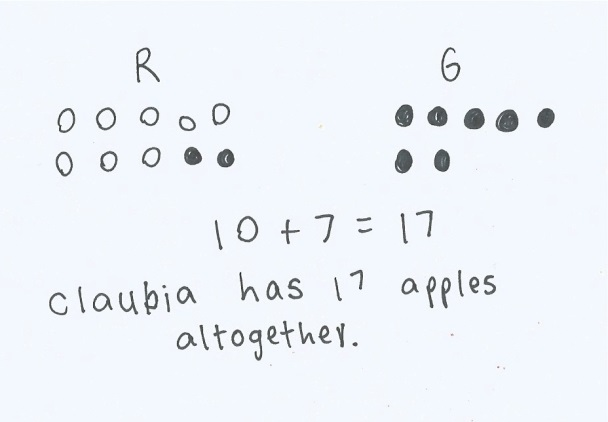 R G
10 + 7 = 17
claubia has 17 apples
altogether.